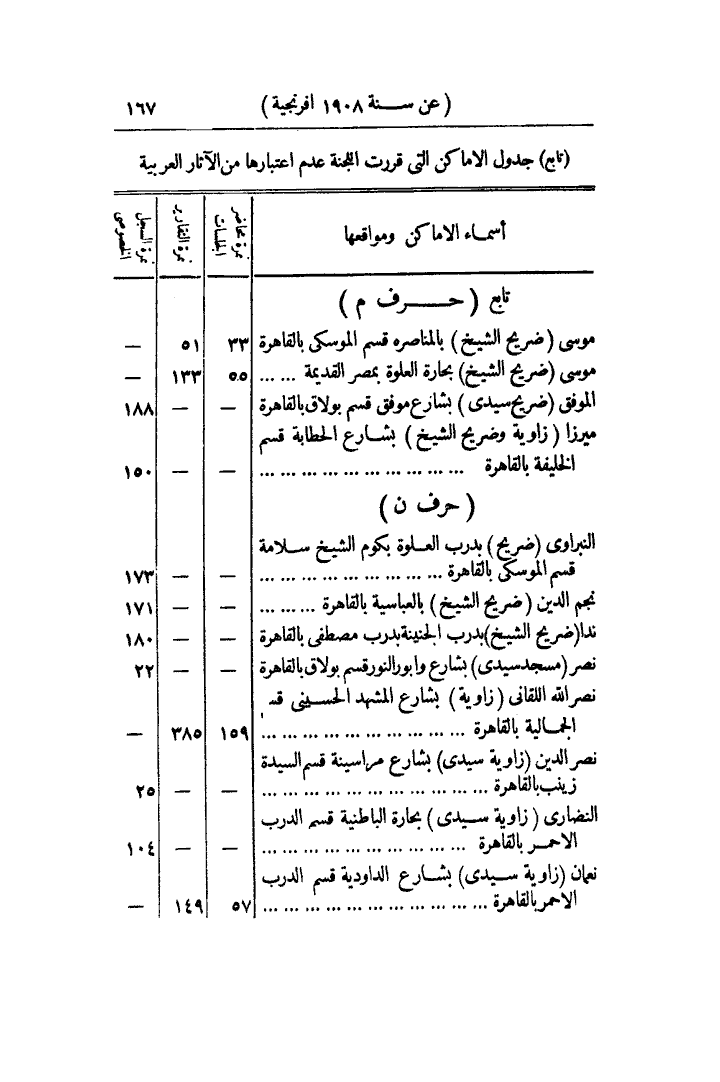 (عن سنة ١٩٠٨ افرنجية) ١٦٧
(تابع) جدول الاماكن التى قررت اللجنة عدم اعتبارها من الآثار العربية
أسماء الاماكن ومواقعها نمرة محاضر الجلسات نمرة التقارير نمرة السجل الخصوصى
تابع (حرف م)
موسى (ضريح الشيخ) بالمناصره قسم الموسكى بالقاهرة ٣٣ ٥١ —
موسى (ضريح الشيخ) بحارة العلوة بمصر القديمة ... ... ٥٥ ١٣٣ —
الموفق (ضريح سيدى) بشارع موفق قسم بولاق بالقاهرة — — ١٨٨
ميرزا (زاوية وضريح الشيخ) بشارع الحطابة قسم
الخليفة بالقاهرة ... ... ... ... ... ... ... ... ... ... — — ١٥٠
(حرف ن)
النبراوى (ضريح) بدرب العلوة بكوم الشيخ سلامة
قسم الموسكى بالقاهرة ... ... ... ... ... ... ... ... ... — — ١٧٣
نجم الدين (ضريح الشيخ) بالعباسية بالقاهرة ... ... ... — — ١٧١
ندا (ضريح الشيخ) بدرب الجنينة بدرب مصطفى بالقاهرة — — ١٨٠
نصر (مسجد سيدى) بشارع وابور النور قسم بولاق بالقاهرة — — ٢٢
نصر الله اللقانى (زاوية) بشارع المشهد الحسينى قسم
الجمالية بالقاهرة ... ... ... ... ... ... ... ... ... ... ١٥٩ ٣٨٥ —
نصر الدين (زاوية سيدى) بشارع مراسينة قسم السيدة
زينب بالقاهرة ... ... ... ... ... ... ... ... ... ... ... — — ٢٥
النضارى (زاوية سيدى) بحارة الباطنية قسم الدرب
الاحمر بالقاهرة ... ... ... ... ... ... ... ... ... ... — — ١٠٤
نعمان (زاوية سيدى) بشارع الداودية قسم الدرب
الاحمر بالقاهرة ... ... ... ... ... ... ... ... ... ... ... ٥٧ ١٤٩ —